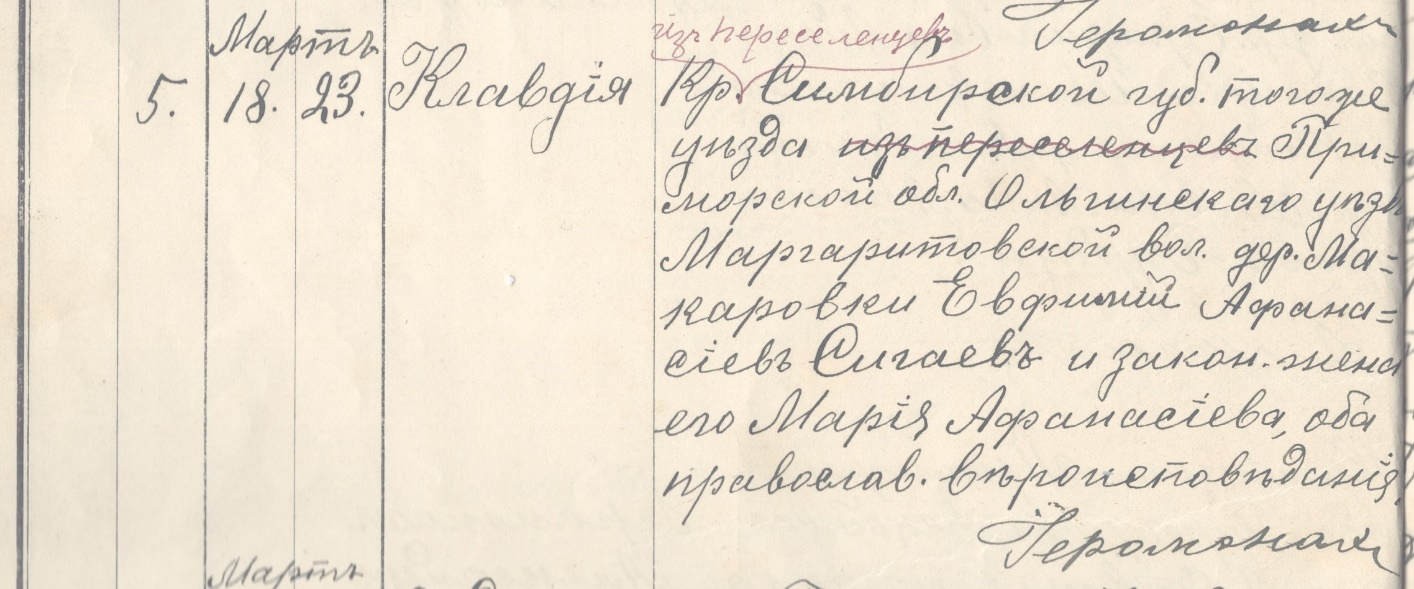 Іеромонахъ
изъ переселенцевъ
Мартъ
5. 18. 23. Клавдія
Кр. Симбирской губ. того же
уѣзда изъ переселенцевъ При=
морской обл. Ольгинскаго уѣзда
Маргаритовской вол. дер. Ма=
каровки Евфимій Афана=
сіевъ Сигаевъ и закон. жена
его Марія Афанасіева, оба
православ. вѣроисповѣданія.
Іеромонахъ
Мартъ